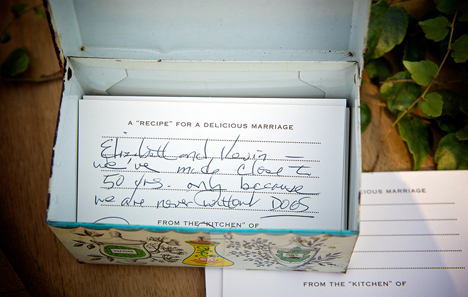 A "RECIPE" FOR A DELICIOUS MARRIAGE
Elizabeth and Kevin –
we've made close to
50 yrs. only because
we are never without DOGS
FROM THE "KITCHEN" OF
CIOUS MARRIAGE
FROM THE "KITCHEN" OF